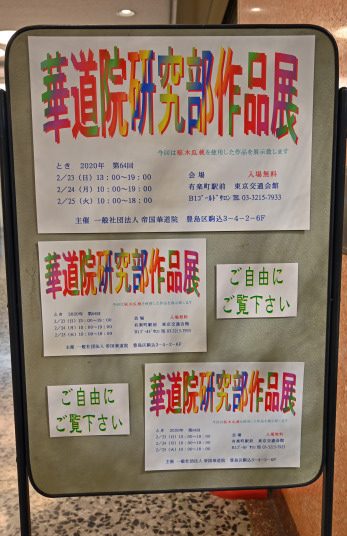 華道院研究部作品展
今回は栃木瓜瓶を使用した作品を展示致します
とき 2020年 第64回
2/23(日) 13:00〜19:00
2/24(月) 10:00〜19:00
2/25(火) 10:00〜18:00
会場 入場無料
有楽町駅前 東京交通会館
B1ゴールドサロン ℡ 03-3215-7933
主催 一般社団法人 帝国華道院 豊島区駒込3-4-2-6F
華道院研究部作品展
とき 2020年 第64回
2/23(日) 13:00〜19:00
2/24(月) 10:00〜19:00
2/25(火) 10:00〜18:00
会場 入場無料
有楽町駅前 東京交通会館
B1ゴールドサロン ℡ 03-3215-7933
主催 一般社団法人 帝国華道院 豊島区駒込3-4-2-6F
ご自由に
ご覧下さい
ご自由に
ご覧下さい
華道院研究部作品展
とき 2020年 第64回
2/23(日) 13:00〜19:00
2/24(月) 10:00〜19:00
2/25(火) 10:00〜18:00
会場 入場無料
有楽町駅前 東京交通会館
B1ゴールドサロン ℡ 03-3215-7933
主催 一般社団法人 帝国華道院 豊島区駒込3-4-2-6F